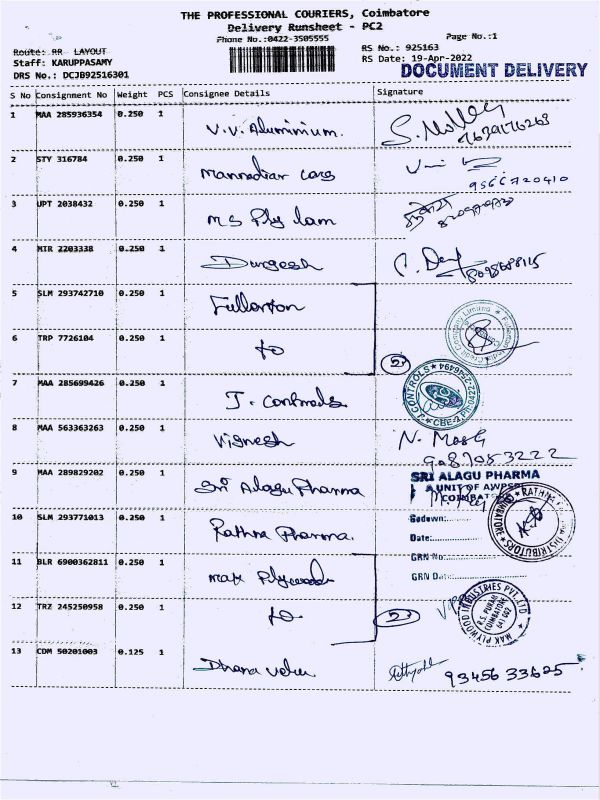 THE PROFESSIONAL COURIERS, Coimbatore
Delivery Runsheet - PC2
Phone No.:0422-3505555
Page No.:1
Route: RR LAYOUT
RS No.: 925163
Staff: KARUPPASAMY
RS Date: 19-Apr-2022
DRS No.: DCJB92516301
DOCUMENT DELIVERY
S No Consignment No Weight PCS Consignee Details Signature
1 MAA 285936354 0.250 1 V.V. Aluminium.
2 STY 316784 0.250 1 Mannediar cars
3 UPT 2038432 0.250 1 MS Ply lam
4 MTR 2203338 0.250 1 Durgesh
5 SLM 293742710 0.250 1 Fullerton
6 TRP 7726104 0.250 1 to 2
7 MAA 285699426 0.250 1 J. Controls
CONTROLS CBE-2
8 MAA 563363263 0.250 1 Vignesh
9087053222
9 MAA 289829202 0.250 1 Sri Alagu Pharma
SRI ALAGU PHARMA
A UNIT OF
COIMBATORE
Godown:
Date:
GRN No:
GRN Date:
10 SLM 293771013 0.250 1 Rathna Pharma.
RATHNA DISTRIBUTORS COIMBATORE
11 BLR 6900362811 0.250 1 Max Plywoods
12 TRZ 245250958 0.250 1 to 2
MAX PLYWOOD INDUSTRIES PVT. LTD
R.S. PURAM
COIMBATORE
641 002
13 CDM 50201003 0.125 1 Dhana velu 9345633625